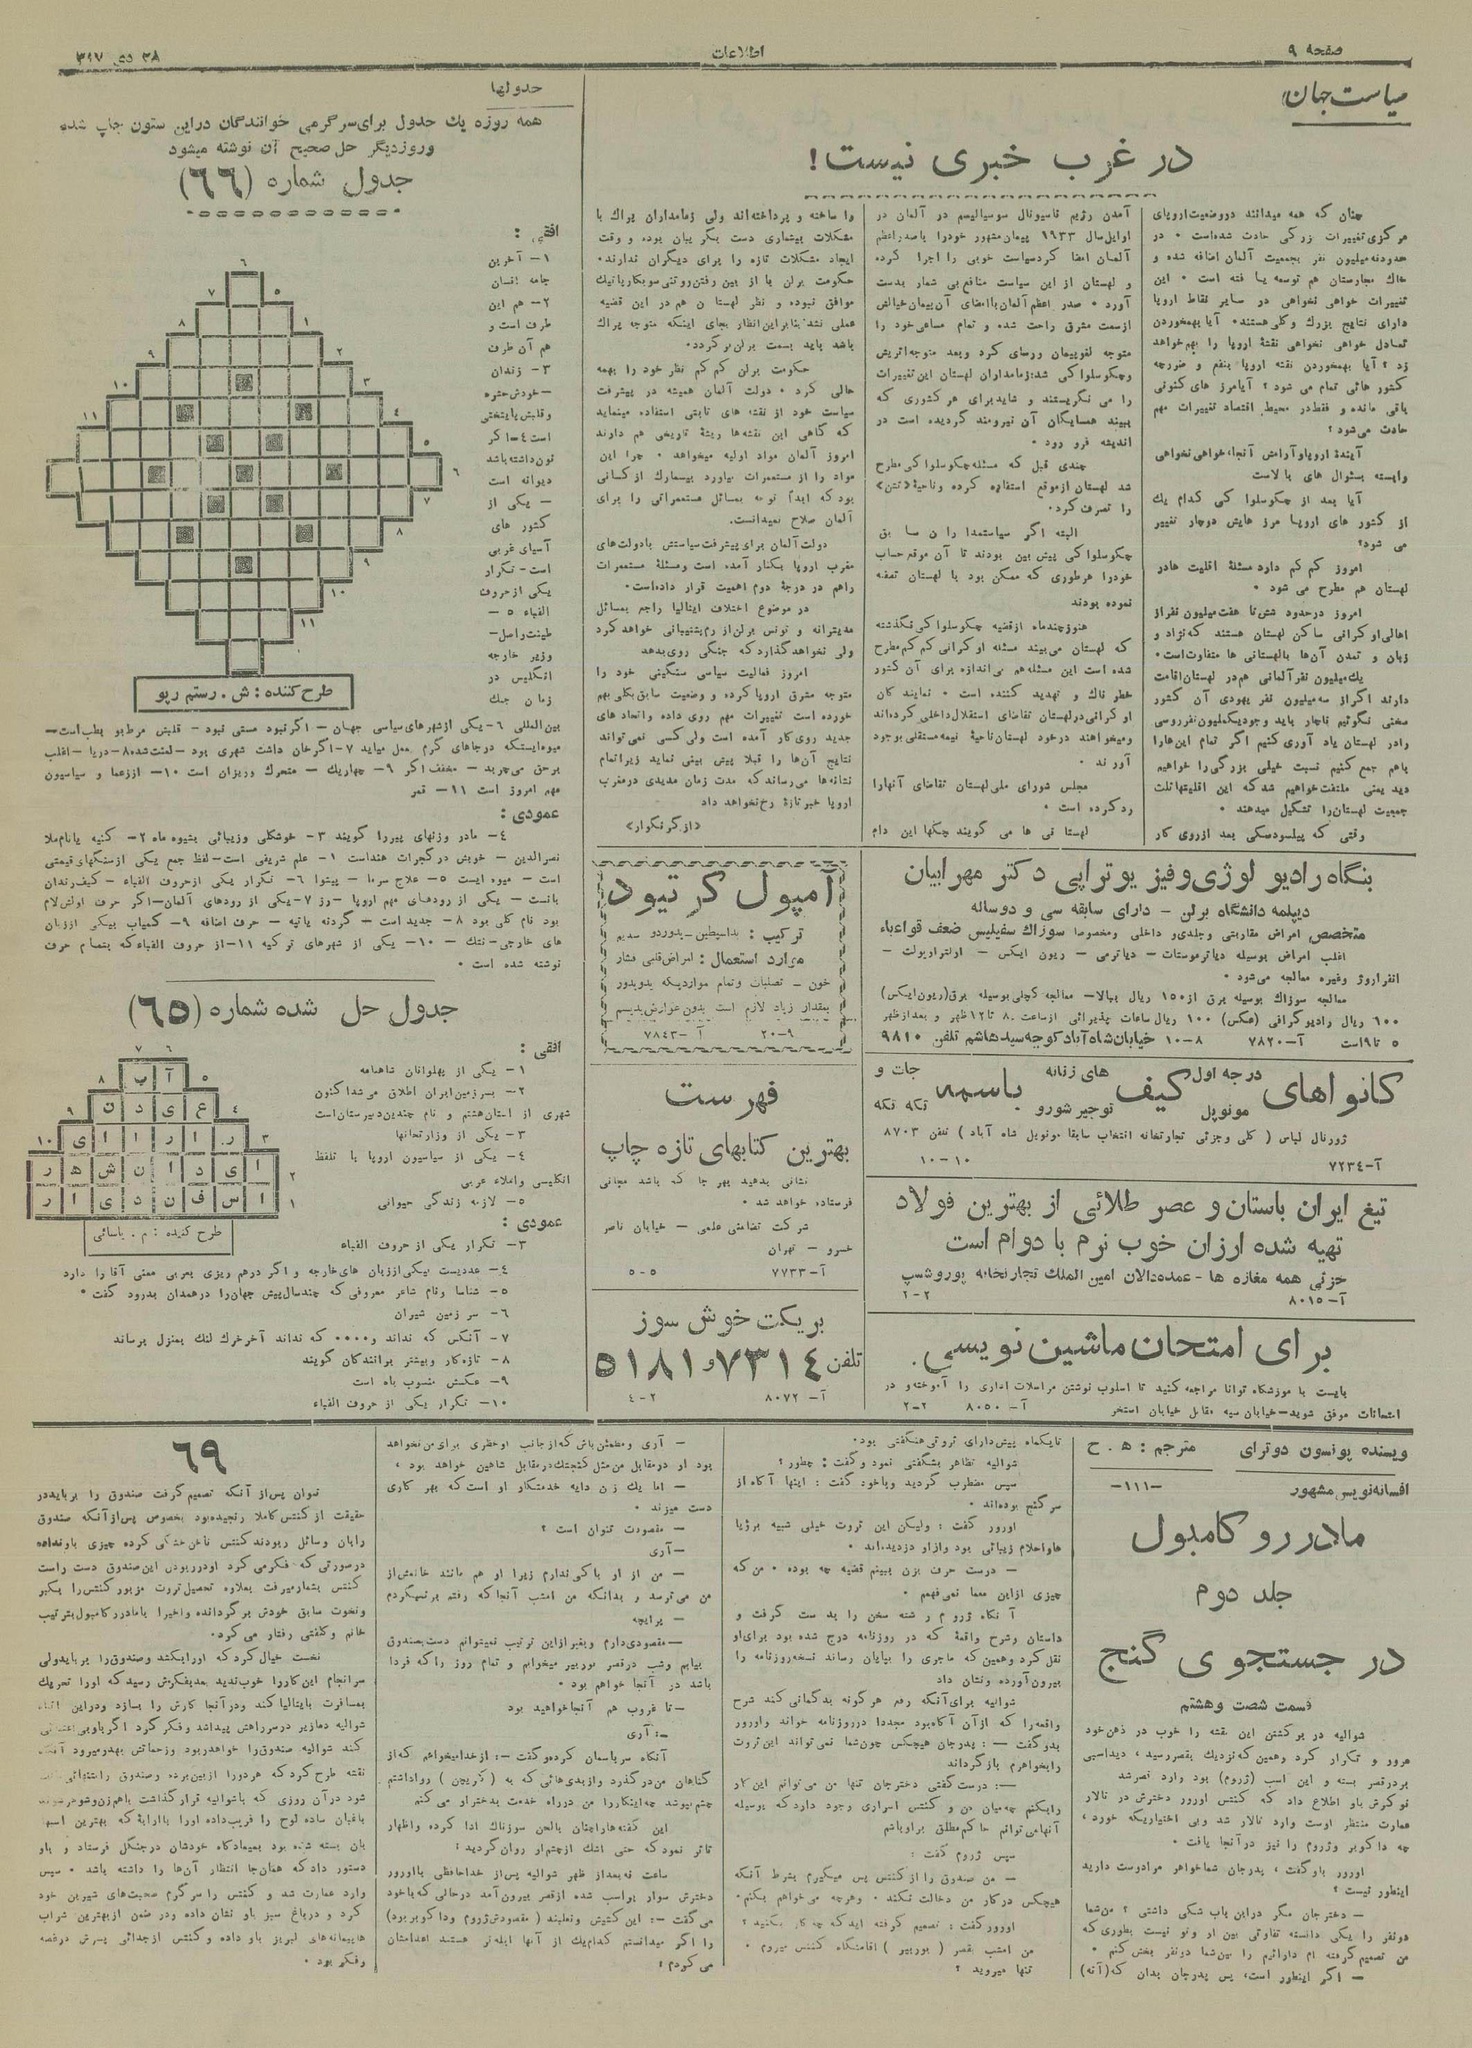 صفحه ۹
اطلاعات
۲۸ دی ۳۱۷
سیاست جهان
در غرب خبری نیست!
چنان که همه میدانند در وضعیت اروپای
مرکزی تغییرات بزرگی حادث شده است ۰ در
حدود نه میلیون نفر بجمعیت آلمان اضافه شده و
خاك مجارستان هم توسعه یا فته است ۰ این
تغییرات خواهی نخواهی در سایر نقاط اروپا
دارای نتایج بزرك و کلی هستند۰ آیا بهمخوردن
تعادل خواهی نخواهی نقشهٔ اروپا را بهم خواهد
زد ؟ آیا بهمخوردن نقشه اروپا بنفع و ضرر چه
کشور هائی تمام می شود ؟ آیا مرز های کنونی
باقی مانده و فقط در محیط اقتصاد تغییرات مهم
حادث می‌شود ؟
آیندهٔ اروپا و آرامش آنجا، خواهی نخواهی
وابسته بسئوال های بالاست
آیا بعد از چکوسلوا کی کدام یك
از کشور های اروپا مرز هایش دوچار تغییر
می شود؟
امروز کم کم دارد مسئلهٔ اقلیت ها در
لهستان هم مطرح می شود ۰
امروز در حدود شش تا هفت میلیون نفر از
اهالی او کرانی ساکن لهستان هستند که نژاد و
زبان و تمدن آن‌ها با لهستانی ها متفاوت است۰
یك میلیون نفر آلمانی هم در لهستان اقامت
دارند اگر از سه میلیون نفر یهودی آن کشور
سخنی نگوئیم ناچار باید وجود یك میلیون نفر روسی
را در لهستان یاد آوری کنیم اگر تمام این‌ها را
باهم جمع کنیم نسبت خیلی بزرگی را خواهیم
دید یعنی ملتفت خواهیم شد که این اقلیتها ثلث
جمعیت لهستان را تشکیل میدهند ۰
وقتی که پیلسودسکی بعد از روی کار
آمدن رژیم ناسیونال سوسیالیسم در آلمان در
اوایل سال ۱۹۳۳ پیمان مشهور خود را با صدر اعظم
آلمان امضا کرد سیاست خوبی را اجرا کرده
و لهستان از این سیاست منافع بی شمار بدست
آورد ۰ صدر اعظم آلمان با امضای آن پیمان خیالش
از سمت مشرق راحت شده و تمام مساعی خود را
متوجه لغو پیمان ورسای کرد و بعد متوجه اتریش
و چکوسلوا کی شد؛ زمامداران لهستان این تغییرات
را می نگریستند و شاید برای هر کشوری که
ببیند همسایگان آن نیرومند گردیده است در
اندیشه فرو رود ۰
چندی قبل که مسئله چکوسلوا کی مطرح
شد لهستان از موقع استفاده کرده و ناحیهٔ «تشن»
را تصرف کرد۰
البته اگر سیاستمدا را ن سا بق
چکوسلوا کی پیش بین بودند تا آن موقع حساب
خود را هر طوری که ممکن بود با لهستان تصفیه
نموده بودند
هنوز چند ماه از قضیه چکوسلوا کی نگذشته
که لهستان می‌بیند مسئله او کرانی کم کم مطرح
شده است این مسئله هم بی اندازه برای آن کشور
خطر ناك و تهدید کننده است ۰ نمایند گان
او کرانی در لهستان تقاضای استقلال داخلی کرده‌اند
و میخواهند در خود لهستان ناحیهٔ نیمه مستقلی بوجود
آور ند ۰
مجلس شورای ملی لهستان تقاضای آنها را
رد کرده است ۰
لهستا نی ها می گویند چکها این دام
را ساخته و پرداخته‌اند ولی زمامداران پراك با
مشکلات بیشماری دست بگر یبان بوده و وقت
ایجاد مشکلات تازه را برای دیگران ندارند۰
حکومت برلن با از بین رفتن روتنی سوبکارپاتیك
موافق نبوده و نظر لهستا ن هم در این قضیه
عملی نشد: بنابر این انظار بجای اینکه متوجه پراك
باشد باید بسمت برلن بر گردد۰
حکومت برلن کم کم نظر خود را بهمه
حالی کرد ۰ دولت آلمان همیشه در پیشرفت
سیاست خود از نقشه های ثابتی استفاده مینماید
که گاهی این نقشه‌ها ریشهٔ تاریخی هم دارند
امروز آلمان مواد اولیه میخواهد ۰ چرا این
مواد را از مستعمرات نیاورد بیسمارك از کسانی
بود که ابداً توجه بمسائل مستعمراتی را برای
آلمان صلاح نمیدانست.
دولت آلمان برای پیشرفت سیاستش با دولت‌های
مغرب اروپا بکنار آمده است و مسئلهٔ مستعمرات
راهم در درجهٔ دوم اهمیت قرار داده است۰
در موضوع اختلاف ایتالیا راجع بمسائل
مدیترانه و تونس برلن از رم پشتیبانی خواهد کرد
ولی نخواهد گذارد که جنگی روی بدهد
امروز فعالیت سیاسی سنگینی خود را
متوجه مشرق اروپا کرده و وضعیت سابق بکلی بهم
خورده است تغییرات مهم روی داده و اتحاد های
جدید روی کار آمده است ولی کسی نمی تواند
نتایج آن‌ها را قبلا پیش بینی نماید زیرا تمام
نشانه‌ها می‌رساند که مدت زمان مدیدی در مغرب
اروپا خبر تازهٔ رخ نخواهد داد
«از گرنگوار»
جدولها
همه روزه یك جدول برای سرگرمی خوانندگان در این ستون چاپ شده
و روز دیگر حل صحیح آن نوشته میشود
جدول شماره (٦٦)
افقی :
۱- آخرین
جامه انسان
۲- هم این
طرف است و
هم آن طرف
۳- زندان
- خودش حشره
و قلبش پایتختی
است ٤- اگر
نون داشته باشد
دیوانه است
- یکی از
کشور های
آسیای غربی
است - تکرار
یکی از حروف
الفباء ٥ -
طینت و اصل -
وزیر خارجه
انگلیس در
زما ن جنك
٦
۷ ٥
۸ ۱
۹ ۲
۱۰ ۳
۱۱ ٤
٥
٦
۷
۸
۹
۱۰
۱۱
طرح کننده : ش . رستم رپو
بین المللی ٦- یکی از شهر های سیاسی جهان - اگر نبود مستی نبود - قلبش مرطوب است -
میوه ایستکه در جاهای گرم بعمل میاید ۷- اگر خان داشت شهری بود - لعنت شده ۸- دریا - اغلب
بر حق می چربد - مخفف اگر ۹- چهار یك - متحرك و ریزان است ۱۰- از زعما و سیاسیون
مهم امروز است ۱۱- قمر
عمودی :
٤- مادر وزنهای پیررا گویند ۳- خوشگلی و زیبائی بشیوه ماه ۲- کنیه یا نام ملا
نصرالدین - خوبش در گجرات هند است ۱- علم شریفی است - لفظ جمع یکی از سنگهای قیمتی
است - میوه ایست ٥- علاج سرما - پیشوا ٦- تکرار یکی از حروف الفباء - کیف رندان
بانست - یکی از رودهای مهم اروپا - رز ۷- یکی از رودهای آلمان - اگر حرف اولش لام
بود نام گلی بود ۸- جدید است - گردنه یا تپه - حرف اضافه ۹- کمیاب بیکی از زبان
های خارجی - ننك - ۱۰- یکی از شهر های ترکیه ۱۱- از حروف الفباء که بتمام حرف
نوشته شده است ۰
جدول حل شده شماره (٦٥)
افقی :
۱- یکی از پهلوانان شاهنامه
۲- بسرزمین ایران اطلاق می‌شد اکنون
شهری از استان هشتم و نام چندین دبیرستان است
۳- یکی از وزارتخانها
٤- یکی از سیاسیون اروپا با تلفظ
انگلیسی و املاء عربی
٥- لازمه زندگی حیوانی
۷ ٦
۸ آ ب ٥
۹ ع ی د ن ٤
۱۰ ر ا ر ا ا ی ۳
ا ی د ا ن ش ه ر ۲
ا س ف ن د ی ا ر ۱
طرح کننده : م . یاسائی
عمودی :
۳- تکرار یکی از حروف الفباء
٤- عددیست بیکی از زبان های خارجه و اگر در هم ریزی بعربی معنی آقا را دارد
٥- شناسا و نام شاعر معروفی که چند سال پیش جهان را در همدان بدرود گفت ۰
٦- سر زمین شیران
۷- آنکس که نداند و ۰۰۰۰ که نداند آخر خرك لنك بمنزل برساند
۸- تازه کار و بیشتر برانندگان گویند
۹- عکسش منسوب بماه است
۱۰- تکرار یکی از حروف الفباء
آمپول کرتیود
ترکیب :
موارد استعمال : امراض قلبی فشار
خون - تصلبات و تمام مواردیکه یدویدور
بمقدار زیاد لازم است بدون عوارض یدیسم
۹-۲۰ آ- ۷۸٤۳
فهرست
بهترین کتابهای تازه چاپ
نشانی بدهید بهر جا که باشد مجانی
فرستاده خواهد شد ۰
شرکت تضامنی علمی - خیابان ناصر
خسرو - تهران
آ- ۷۷۳۳ ٥-٥
بریکت خوش سوز
تلفن ۷۳۱٤ و ٥۱۸۱
آ- ۸۰۷۲ ۲-٤
بنگاه رادیو لوژی و فیز یوتراپی دکتر مهرابیان
دیپلمه دانشگاه برلن - دارای سابقه سی و دو ساله
متخصص امراض مقاربتی و جلدی و داخلی و مخصوصا سوزاك سفیلیس ضعف قواء باء
اغلب امراض بوسیله دیاترموستات - دیاترمی - ریون ایکس - اولتراویولت -
انفراروژ وغیره معالجه می‌شود ۰
معالجه سوزاك بوسیله برق از ۱٥۰ ریال ببالا - معالجه کچلی بوسیله برق (ریون ایکس)
٦۰۰ ریال رادیو گرافی (عکس) ۱۰۰ ریال ساعات پذیرائی از ساعت ۸ تا ۱۲ ظهر و بعد از ظهر
٥ تا ۹ است آ- ۷۸۲۰ ۸-۱۰ خیابان شاه آباد کوچه سیدهاشم تلفن ۹۸۱۰
کانواهای درجه اول مونوپل کیف های زنانه توجیر شورو باسمه جات و تکه تکه
ژورنال لباس ( کلی وجزئی تجارتخانه انتخاب سابقا مونوپل شاه آباد ) تلفن ۸۷۰۳
آ- ۷۲۳٤ ۱۰-۱۰
تیغ ایران باستان و عصر طلائی از بهترین فولاد
تهیه شده ارزان خوب نرم با دوام است
جزئی همه مغازه ها - عمده دالان امین الملك تجارتخانه پوروشسپ
آ- ۸۰۱٥ ۲-۲
برای امتحان ماشین نویسی
بایست با موزشگاه توانا مراجعه کنید تا اسلوب نوشتن مراسلات اداری را آموخته و در
امتحانات موفق شوید - خیابان سپه مقابل خیابان استخر آ- ۸۰٥۰ ۲-۲
ویسنده پونسون دوترای مترجم : ه . ح
افسانه نویس مشهور -۱۱۱-
مادر رو کامبول
جلد دوم
در جستجوی گنج
قسمت شصت وهشتم
شوالیه در بر گشتن این نقشه را خوب در ذهن خود
مرور و تکرار کرد وهمین که نزدیك بقصر رسید ، دید اسبی
بردر قصر بسته و این اسب (ژروم) بود وارد قصر شد
نوکرش باو اطلاع داد که کنتس اورور دخترش در تالار
عمارت منتظر اوست وارد تالار شد وبی اختیار یکه خورد ،
چه داگوبر وژروم را نیز در آنجا یافت ۰
اورور باو گفت ، پدرجان شما خواهر مرا دوست دارید
اینطور نیست ؟
- دختر جان مگر در این باب شکی داشتی ؟ من شما
دونفر را یکی دانسته تفاوتی بین او و تو نیست بطوری که
من تصمیم گرفته ام دارائیم را بین شما دونفر بخش کنم ۰
- اگر اینطور است، پس پدرجان بدان که (آنه)
تا یکماه پیش دارای ثروتی هنگفتی بود۰
شوالیه تظاهر بشگفتی نمود و گفت : چطور ؟
سپس مضطرب گردید و باخود گفت : اینها آگاه از
سر گنج بوده‌اند ۰
اورور گفت : ولیکن این ثروت خیلی شبیه برؤیا
ها و احلام زیبائی بود و از او دزدیدند ۰
- درست حرف بزن ببینم قضیه چه بوده ۰ من که
چیزی از این معما نمی فهمم ۰
آ نگاه ژروم ر شته سخن را بد ست گرفت و
داستان وشرح واقعهٔ که در روزنامه درج شده بود برای او
نقل کرد وهمین که ماجری را بپایان رساند نسخه روزنامه را
بیرون آورده ونشان داد
شوالیه برای آنکه رفع هر گونه بدگمانی کند شرح
واقعه را که از آن آگاه بود مجددا در روزنامه خواند واورور
بدو گفت - : پدرجان هیچکس چون شما نمی تواند این ثروت
را بخواهرم باز گرداند
-: درست گفتی دخترجان تنها من می توانم این کار
را بکنم چه میان من و کنتس اسراری وجود دارد که بوسیله
آنها می توانم حاکم مطلق بر او باشم
سپس ژروم گفت :
- من صندوق را از کنتس پس میگیرم بشرط آنکه
هیچکس در کار من دخالت نکند ۰ وهرچه می خواهم بکنم۰
اورور گفت : تصمیم گرفته اید که چه کار بکنید ؟
من امشب بقصر ( بوربیر ) اقامتگاه کنتس میروم ۰
تنها میروید ؟
- آری ومطمئن باش که از جانب او خطری برای من نخواهد
بود او در مقابل من مثل گنجشك در مقابل شاهین خواهد بود ،
- اما یك زن دایه خدمتکار او است که بهر کاری
دست میزند ۰
- مقصودت تنوان است ؟
- آری
- من از او باکی ندارم زیرا او هم مانند خانمش از
من می ترسد و بدانکه من امشب آنجا که رفتم برنمیگردم
- برای چه
- مقصودی دارم وبغیر از این ترتیب نمیتوانم دست بصندوق
بیابم وشب در قصر بوربیر میخوابم و تمام روز را که فردا
باشد در آنجا خواهم بود ۰
- تا غروب هم آنجا خواهید بود
-: آری
آنگاه سر باسمان کرده و گفت -: از خدا میخواهم که از
گناهان من در گذرد و از بدی هائی که به ( گریچن ) روا داشتم
چشم بپوشد چه اینکار را من در راه خدمت بدختر او می کنم
این گفته ها را چنان بالحن سوزناك ادا کرده واظهار
تاثر نمود که حتی اشك از چشم او روان گردید :
ساعت نه بعد از ظهر شوالیه پس از خدا حافظی با اورور
دخترش سوار بر اسب شده از قصر بیرون آمد در حالی که باخود
می گفت -: این کشیش و نعلبند ( مقصودش ژروم و داگوبر بود)
را اگر میدانستم کدام یك از آنها ابله‌تر هستند اعدامشان
می کردم ؛
٦۹
تنوان پس از آنکه تصمیم گرفت صندوق را برباید در
حقیقت از کنتس کاملا رنجیده بود بخصوص پس از آنکه صندوق
را بان وسائل ربودند کنتس ناخن خشکی کرده چیزی باو نداده
درصورتی که فکر می کرد او در بودن این صندوق دست راست
کنتس بشمار میرفت بعلاوه تحصیل ثروت مزبور کنتس را بکبر
ونخوت سابق خودش برگردانده واخیرا با مادر رو کامبول بترتیب
خانم وکلفتی رفتار می کرد۰
نخست خیال کرد که او را بکشد وصندوق را برباید ولی
سرانجام این کار را خوب ندید بعد بفکرش رسید که او را تحریك
بمسافرت بایتالیا کند ودر آنجا کارش را بسازد ودر این اثناء
شوالیه دمازیر در سر راهش پیدا شد وفکر کرد اگر باو بی اعتنائی
کند شوالیه صندوق را خواهد ربود وزحماتش بهدر میرود آنگاه
نقشه طرح کرد که هر دو را از بین برده وصندوق را
شود در آن روزی که باشوالیه قرار گذاشت باهم زن وشوهر شوند
باغبان ساده لوح را فریب داده او را با ارابهٔ که بهترین اسبها
بان بسته شده بود بمیعادگاه خودشان در جنگل فرستاد و باو
دستور داد که همان جا انتظار آن‌ها را داشته باشد ۰ سپس
وارد عمارت شد و کنتس را سر گرم صحبت های شیرین خود
کرد و در باغ سبز باو نشان داده ودر ضمن از بهترین شراب
ها پیمانه‌های لبریز باو داده و کنتس از جدائی پسرش در غصه
وفکر بود ۰